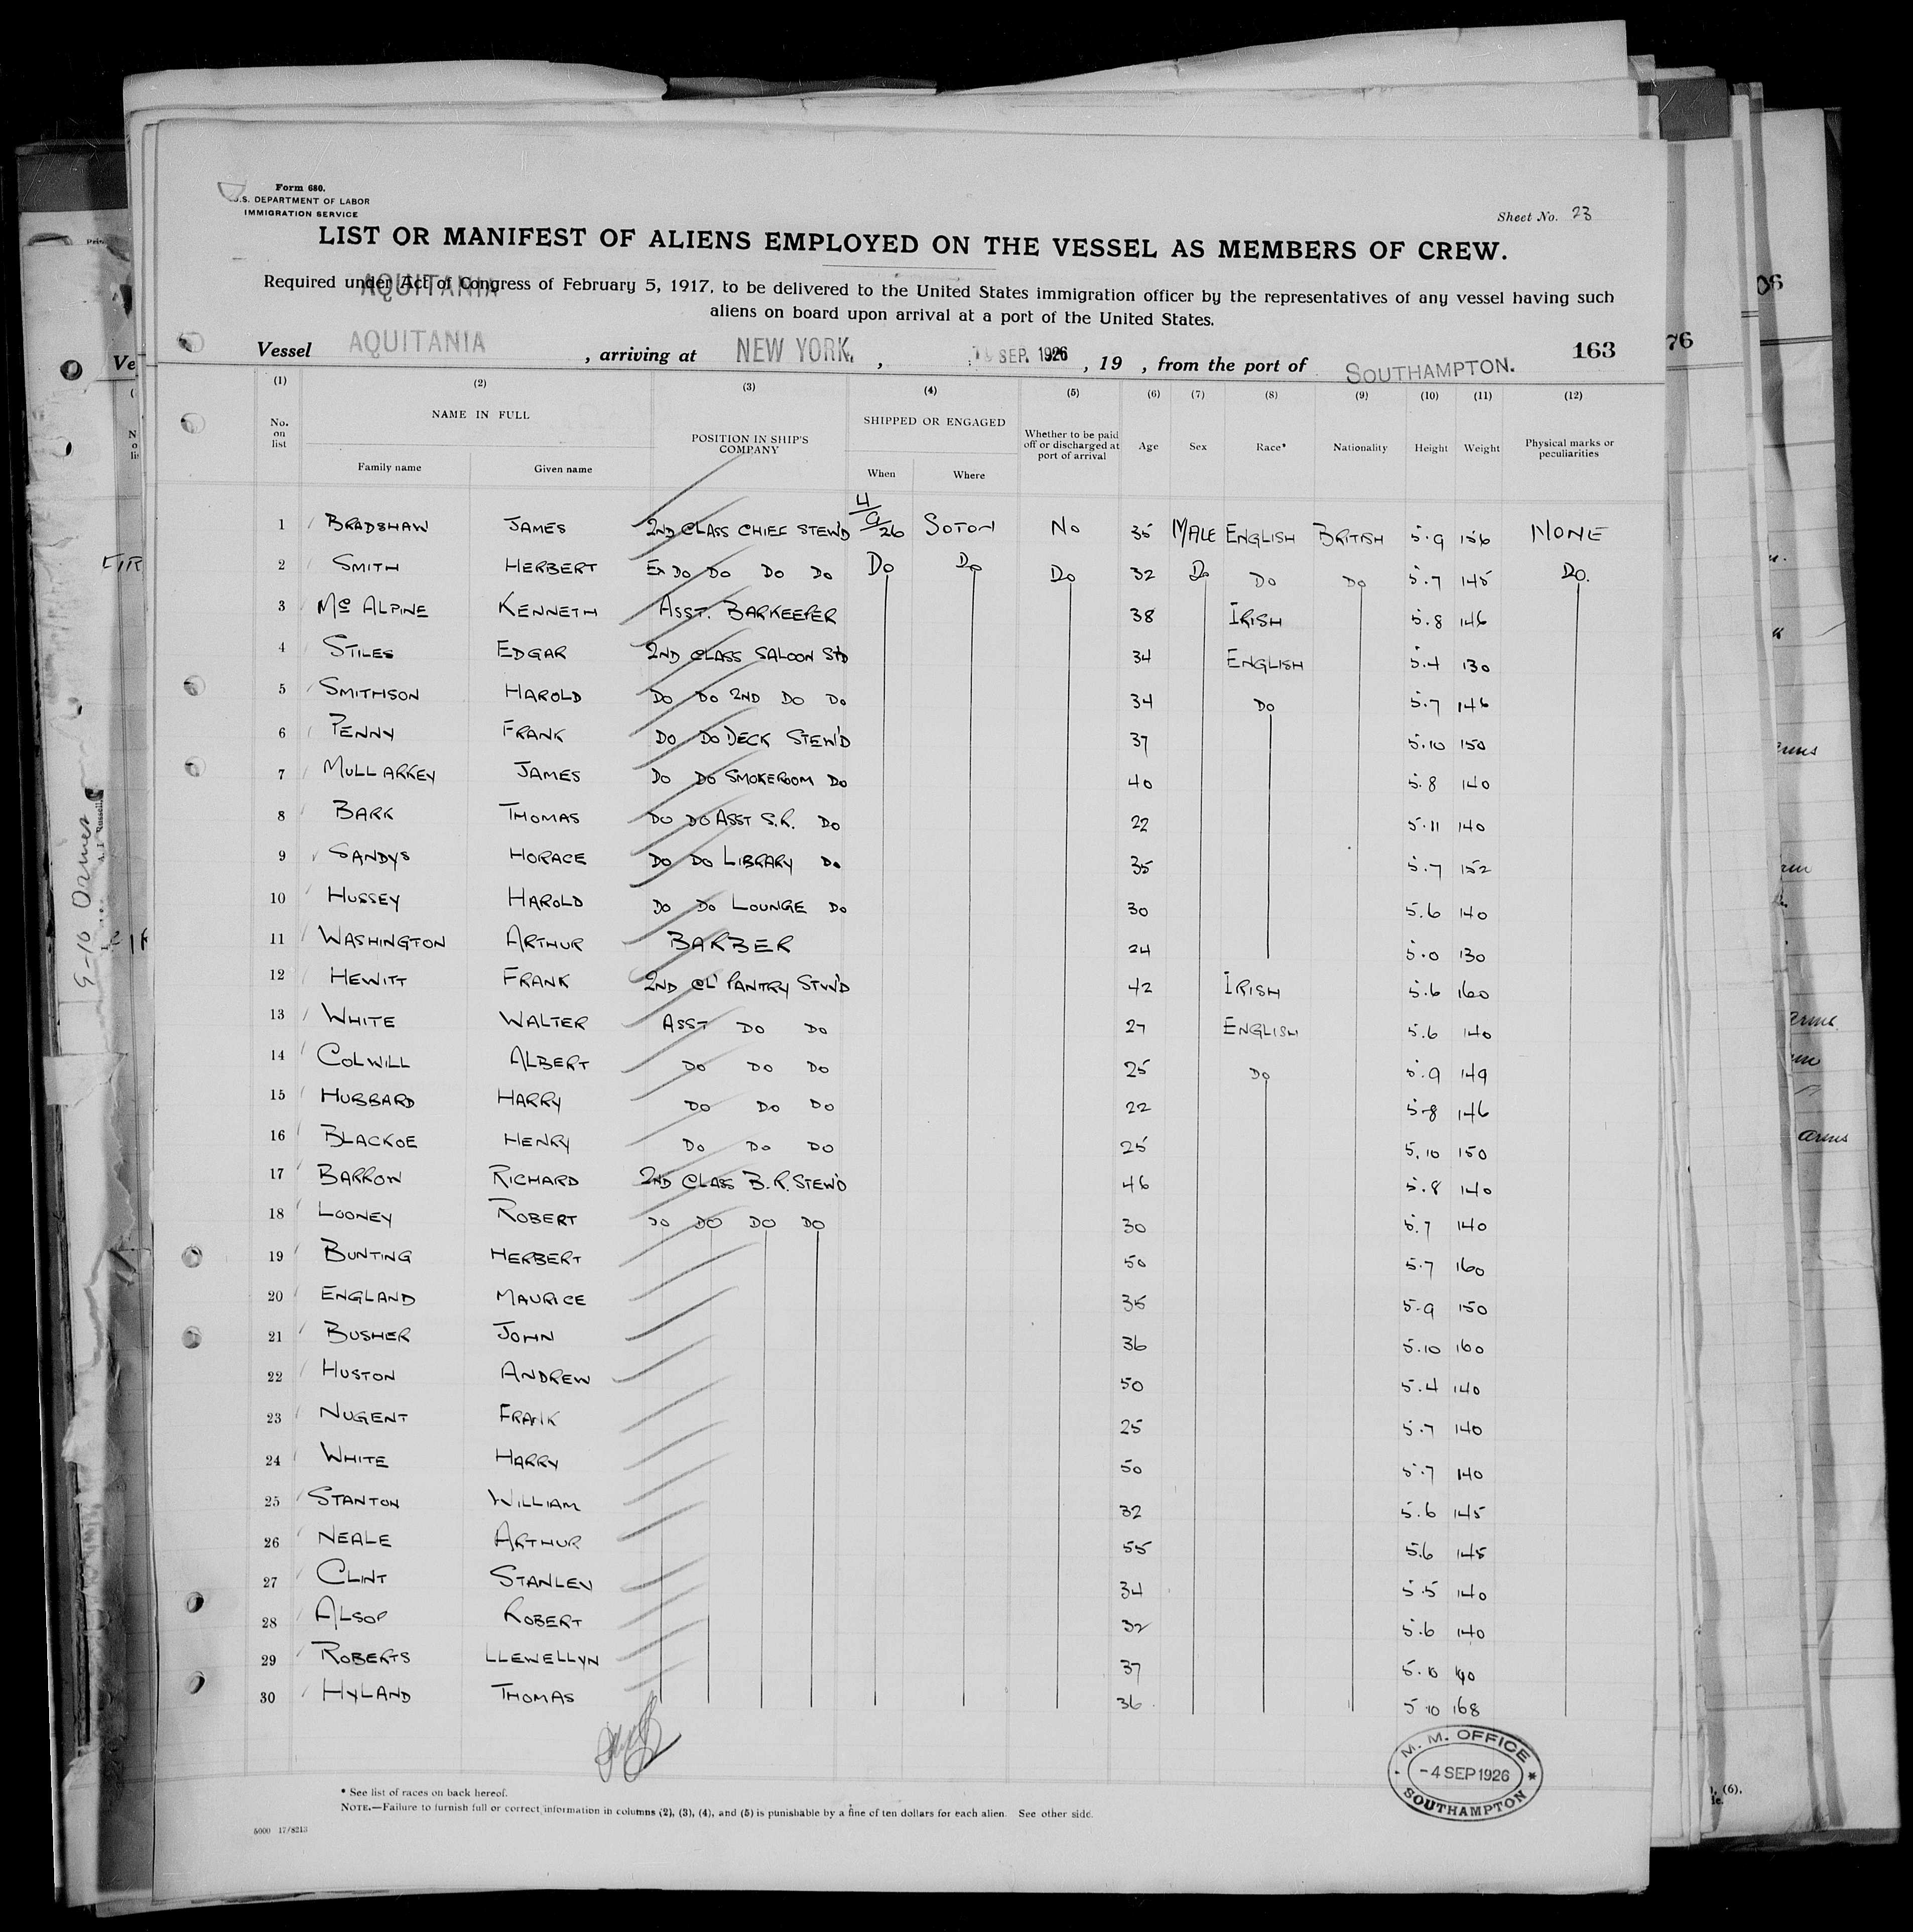 Form 680.
U.S. DEPARTMENT OF LABOR
IMMIGRATION SERVICE
Sheet No. 23
LIST OR MANIFEST OF ALIENS EMPLOYED ON THE VESSEL AS MEMBERS OF CREW.
AQUITANIA
Required under Act of Congress of February 5, 1917, to be delivered to the United States immigration officer by the representatives of any vessel having such
aliens on board upon arrival at a port of the United States.
Vessel AQUITANIA, arriving at NEW YORK, SEP. 1926, 19 , from the port of SOUTHAMPTON. 163
76
(1) (2) (3) (4) (5) (6) (7) (8) (9) (10) (11) (12)
No. on list NAME IN FULL Family name Given name POSITION IN SHIP'S COMPANY SHIPPED OR ENGAGED When Where Whether to be paid off or discharged at port of arrival Age Sex Race* Nationality Height Weight Physical marks or peculiarities
1 BRADSHAW JAMES 2ND CLASS CHIEF STEW'D 4/9/26 SOTON NO 35 MALE ENGLISH BRITISH 5.9 156 NONE
2 SMITH HERBERT DO DO DO DO DO DO 32 DO DO DO 5.7 145 DO.
3 Mc ALPINE KENNETH ASST. BARKEEPER 38 IRISH 5.8 146
4 STILES EDGAR 2ND CLASS SALOON STD 34 ENGLISH 5.4 130
5 SMITHSON HAROLD DO DO 2ND DO DO 34 DO 5.7 146
6 PENNY FRANK DO DO DECK STEW'D 37 5.10 150
7 MULLARKEY JAMES DO DO SMOKEROOM DO 40 5.8 140
8 BARK THOMAS DO DO ASST S.R. DO 22 5.11 140
9 SANDYS HORACE DO DO LIBRARY DO 35 5.7 152
10 HUSSEY HAROLD DO DO LOUNGE DO 30 5.6 140
11 WASHINGTON ARTHUR BARBER 24 5.0 130
12 HEWITT FRANK 2ND CL' PANTRY STW'D 42 IRISH 5.6 160
13 WHITE WALTER ASST DO DO 27 ENGLISH 5.6 140
14 COLWILL ALBERT DO DO DO 25 DO 5.9 149
15 HUBBARD HARRY DO DO DO 22 5.8 146
16 BLACKOE HENRY DO DO DO 25 5.10 150
17 BARRON RICHARD 2ND CLASS B.R. STEW'D 46 5.8 140
18 LOONEY ROBERT DO DO DO DO 30 5.7 140
19 BUNTING HERBERT 50 5.7 160
20 ENGLAND MAURICE 35 5.9 150
21 BUSHER JOHN 36 5.10 160
22 HUSTON ANDREW 50 5.4 140
23 NUGENT FRANK 25 5.7 140
24 WHITE HARRY 50 5.7 140
25 STANTON WILLIAM 32 5.6 145
26 NEALE ARTHUR 55 5.6 145
27 CLINT STANLEY 34 5.5 140
28 ALSOP ROBERT 32 5.6 140
29 ROBERTS LLEWELLYN 37 5.10
30 HYLAND THOMAS 36 5.10 168
M. M. OFFICE
-4 SEP 1926
SOUTHAMPTON
* See list of races on back hereof.
NOTE.—Failure to furnish full or correct information in columns (2), (3), (4), and (5) is punishable by a fine of ten dollars for each alien. See other side.
5000 17/8213